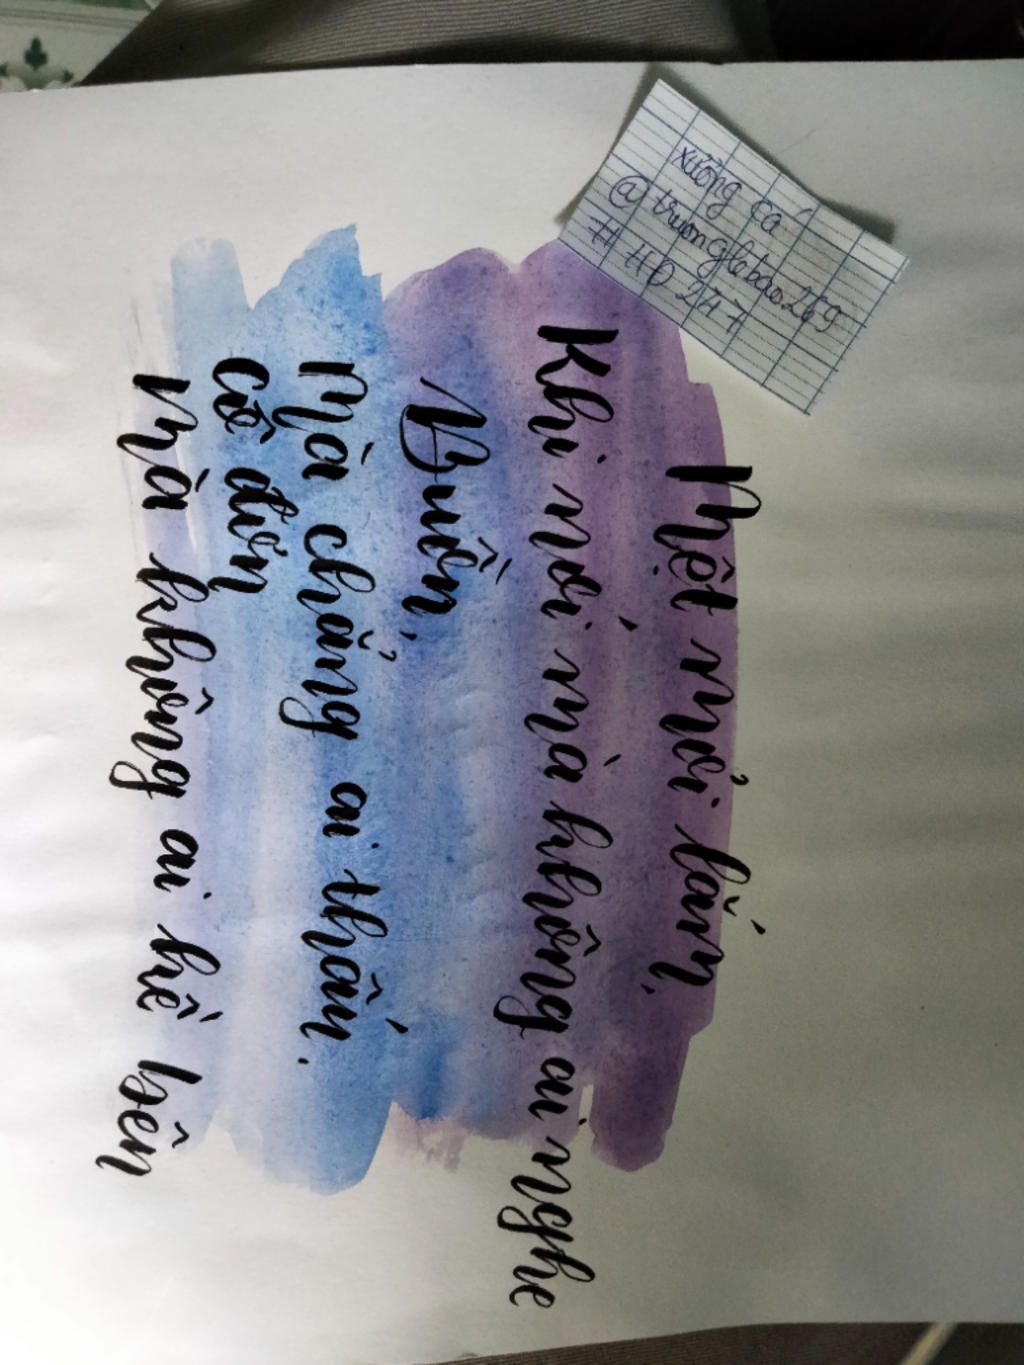 xưởng cá
@truonglebao.269
# HĐ 277
Mệt mỏi lắm,
Khi nói mà không ai nghe
Buồn,
Mà chẳng ai thấu.
Cô đơn
Mà không ai kề bên